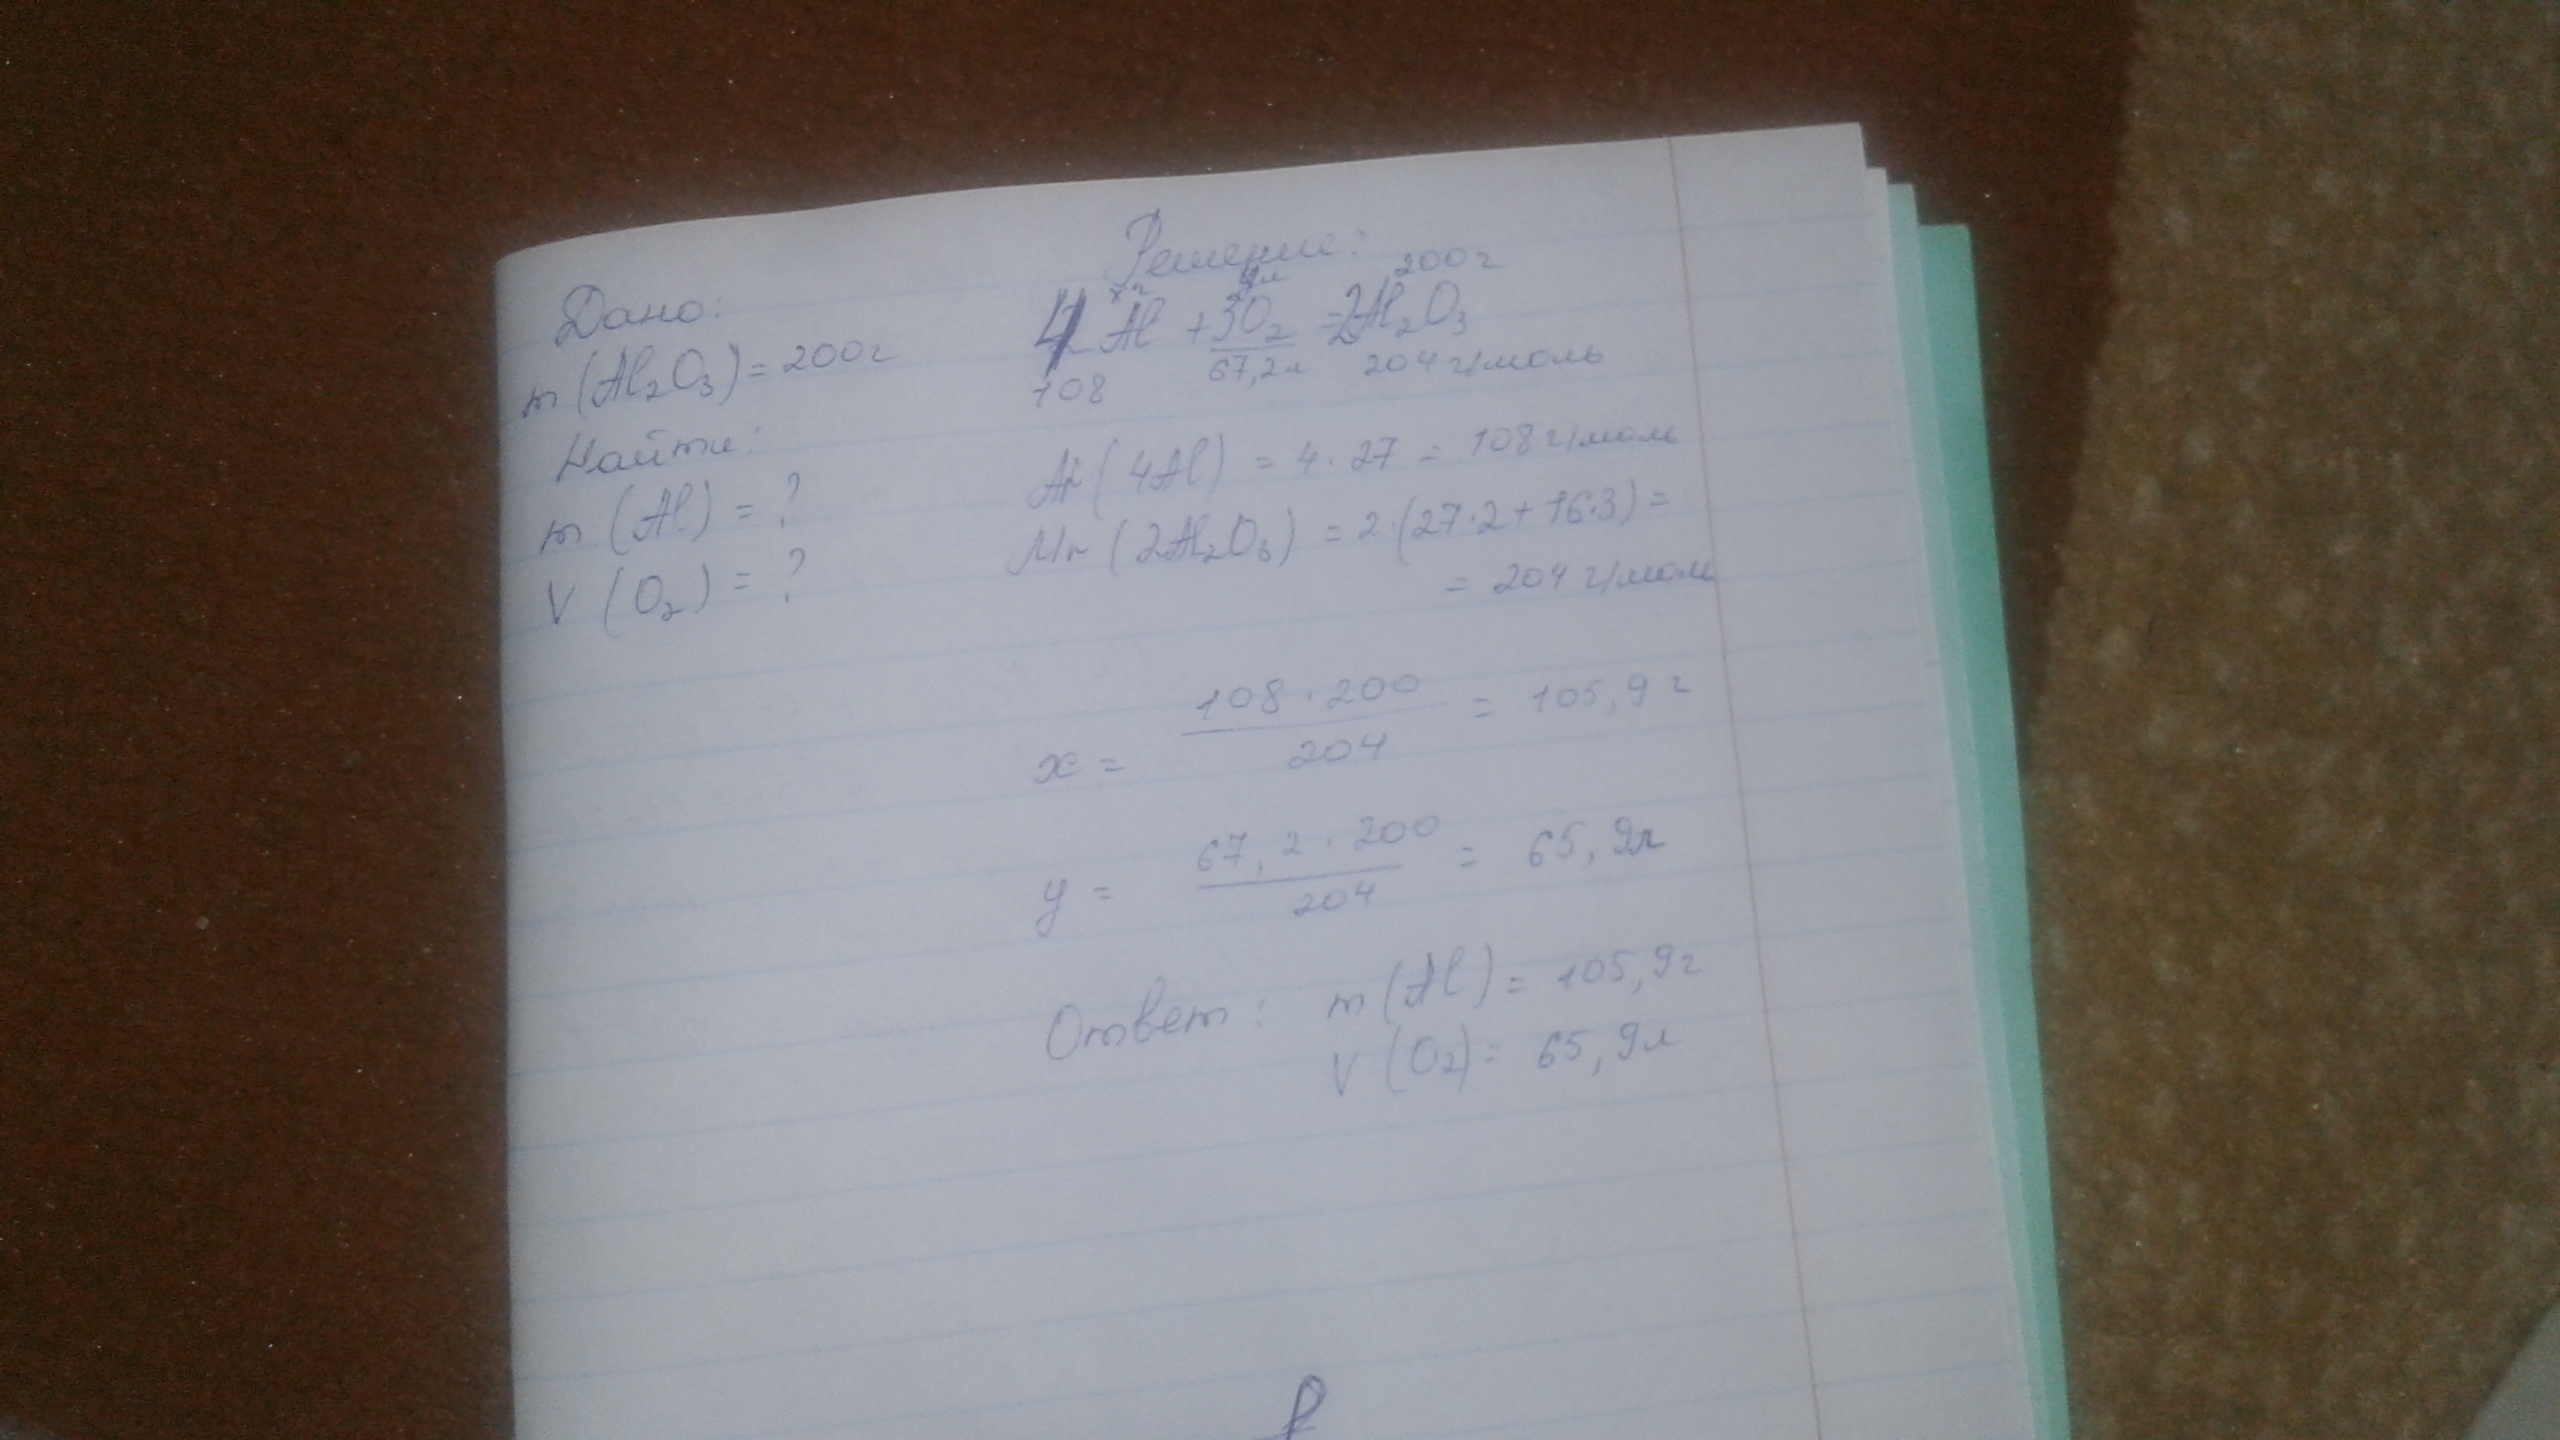 Дано:
m (Al₂O₃) = 200г
Найти:
m (Al) = ?
V (O₂) = ?
Решение:
x г yл 200г
4Al + 3O₂ = 2Al₂O₃
108 67,2л 204 г/моль
Ar (4Al) = 4·27 = 108 г/моль
Mr (2Al₂O₃) = 2·(27·2 + 16·3) =
= 204 г/моль
x = 108·200 / 204 = 105,9 г
y = 67,2·200 / 204 = 65,9л
Ответ: m (Al) = 105,9г
V (O₂) = 65,9л